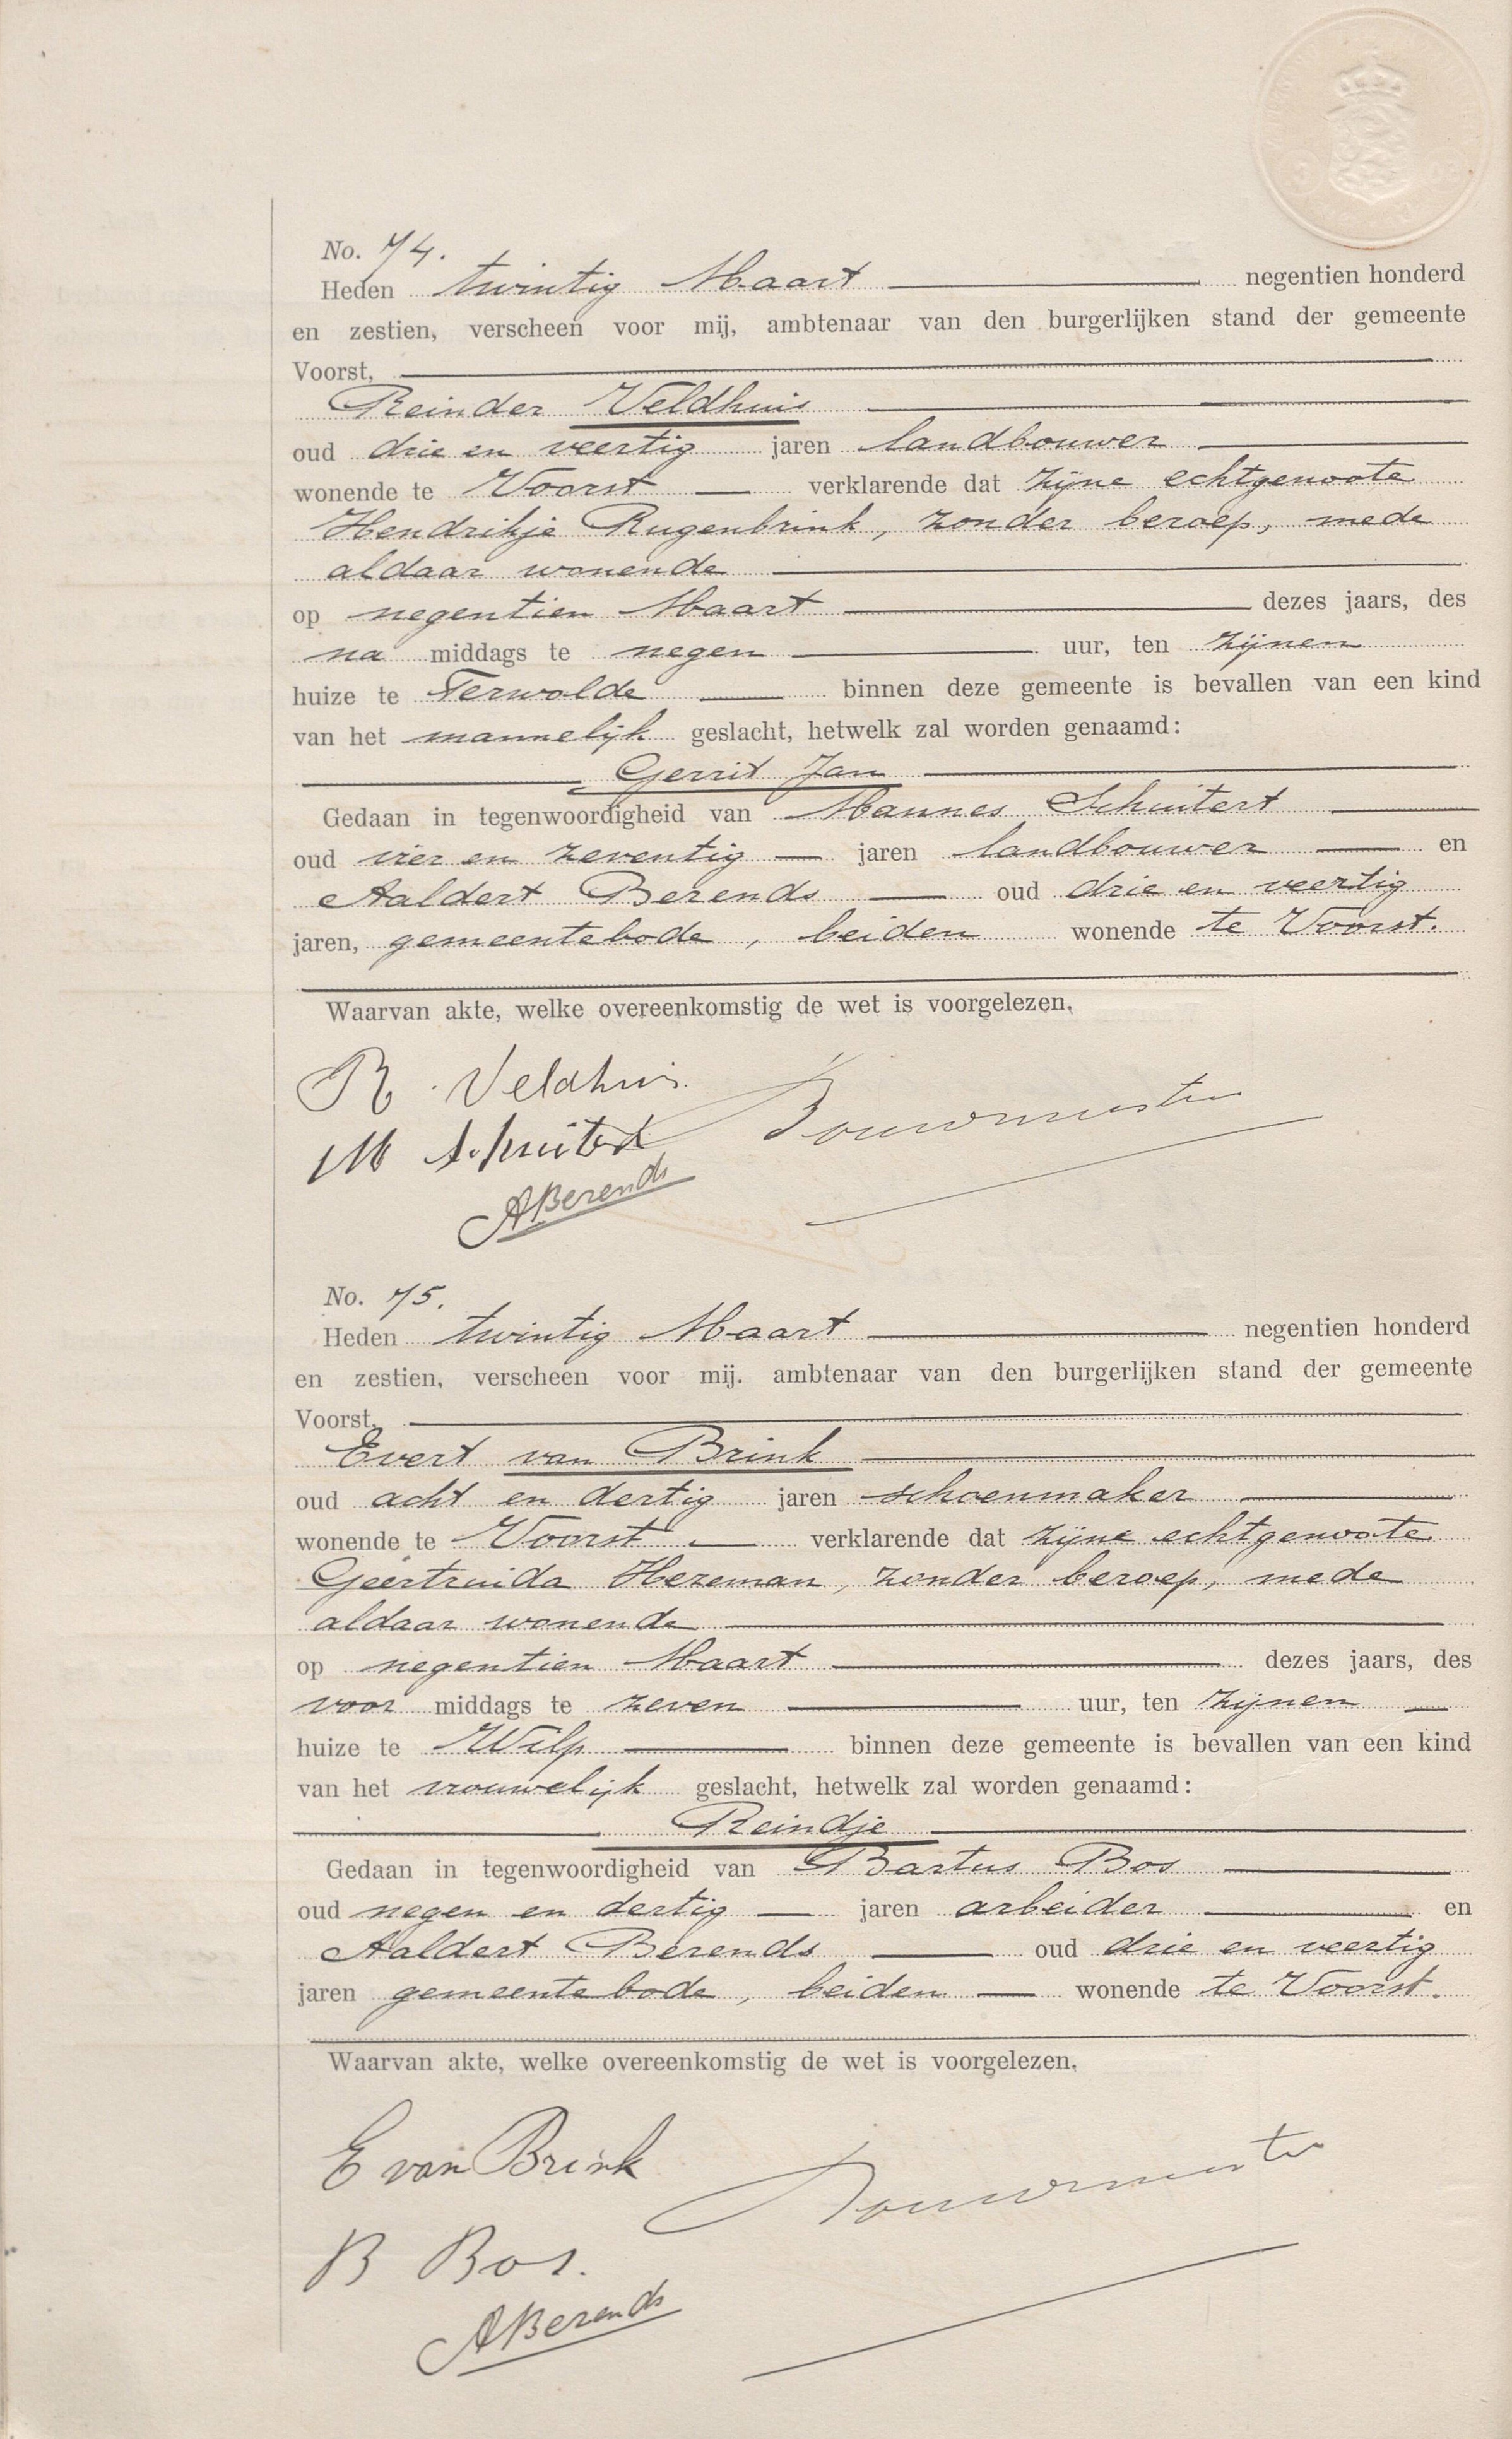 No. 74.
Heden twintig Maart negentien honderd
en zestien, verscheen voor mij, ambtenaar van den burgerlijken stand der gemeente
Voorst,
Reinder Veldhuis
oud drie en veertig jaren landbouwer
wonende te Voorst verklarende dat zijne echtgenoote
Hendrikje Rugenbrink, zonder beroep, mede
aldaar wonende
op negentien Maart dezes jaars, des
na middags te negen uur, ten zijnen
huize te Terwolde binnen deze gemeente is bevallen van een kind
van het mannelijk geslacht, hetwelk zal worden genaamd:
Gerrit Jan
Gedaan in tegenwoordigheid van Mannes Schuitert
oud vier en zeventig jaren landbouwer en
Aaldert Berends oud drie en veertig
jaren, gemeentebode, beiden wonende te Voorst.
Waarvan akte, welke overeenkomstig de wet is voorgelezen,
R. Veldhuis.
Bouwmeester
M Schuitert
ABerends
No. 75.
Heden twintig Maart negentien honderd
en zestien, verscheen voor mij. ambtenaar van den burgerlijken stand der gemeente
Voorst,
Evert van Brink
oud acht en dertig jaren schoenmaker
wonende te Voorst verklarende dat zijne echtgenoote
Geertruida Hezeman, zonder beroep, mede
aldaar wonende
op negentien Maart dezes jaars, des
voor middags te zeven uur, ten zijnen
huize te Wilp binnen deze gemeente is bevallen van een kind
van het vrouwelijk geslacht, hetwelk zal worden genaamd:
Reindje
Gedaan in tegenwoordigheid van Bartus Bos
oud negen en dertig jaren arbeider en
Aaldert Berends oud drie en veertig
jaren gemeentebode, beiden wonende te Voorst.
Waarvan akte, welke overeenkomstig de wet is voorgelezen,
E van Brink
Bouwmeester
B Bos.
ABerends